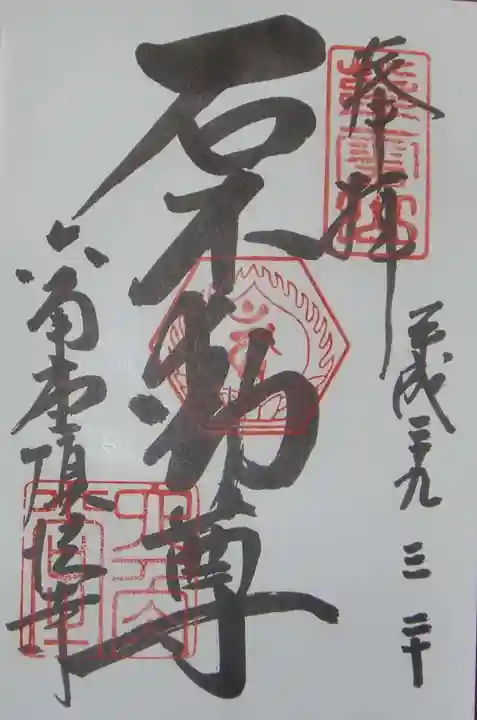 奉拝
平成二九 三 二十
石不動尊
六角堂頂法寺